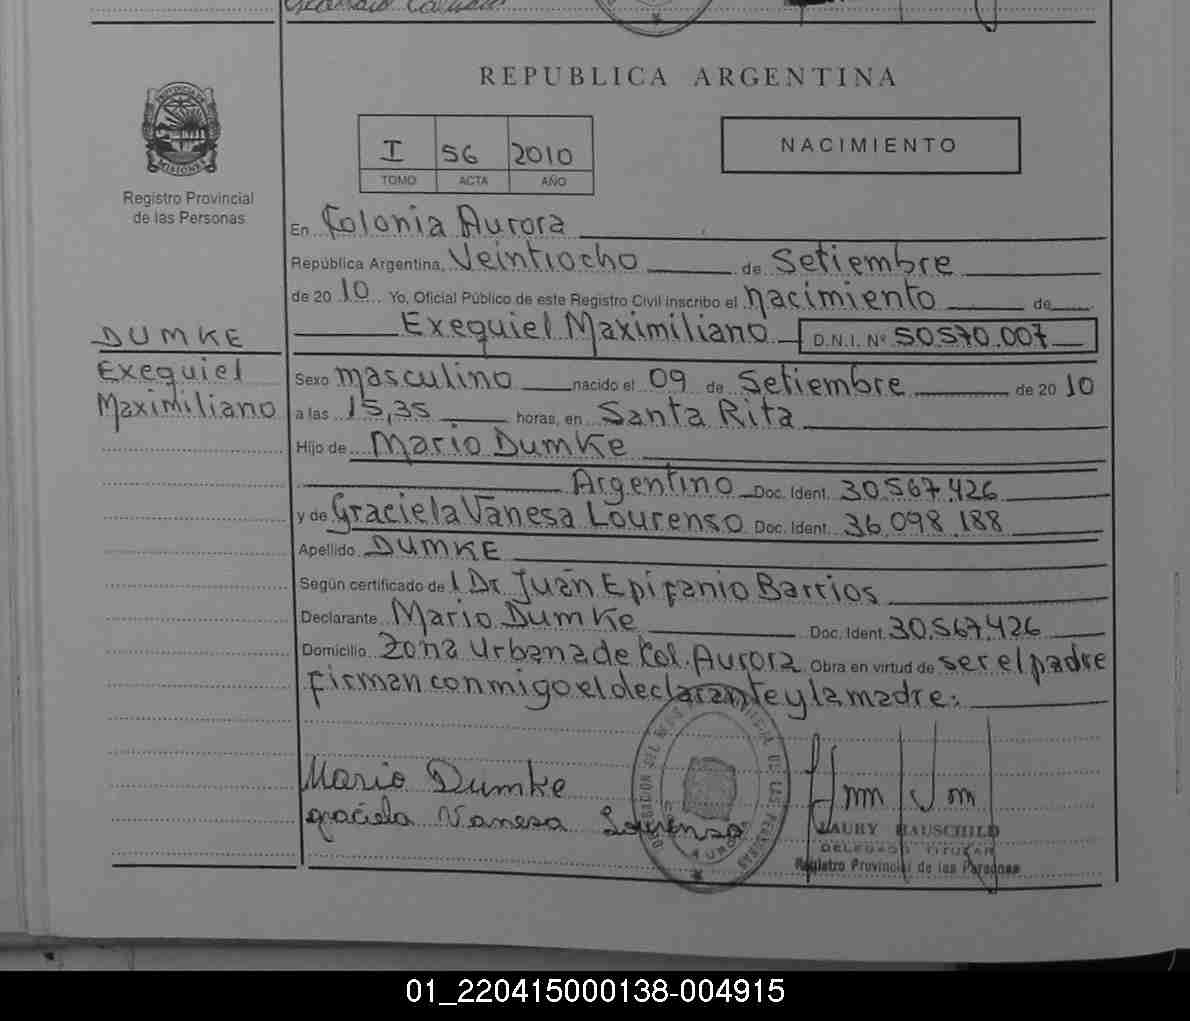 REPUBLICA ARGENTINA
PROVINCIA DE
MISIONES
Registro Provincial
de las Personas
I 56 2010
TOMO ACTA AÑO
NACIMIENTO
En Colonia Aurora
República Argentina, Veintiocho de Setiembre
de 2010 Yo, Oficial Público de este Registro Civil inscribo el nacimiento de
Exequiel Maximiliano D.N.I. Nº 50.570.007
DUMKE
Exequiel
Maximiliano
Sexo masculino nacido el 09 de Setiembre de 2010
a las 15,35 horas, en Santa Rita
Hijo de Mario Dumke
Argentino Doc. Ident. 30.567.426
y de Graciela Vanesa Lourenso Doc. Ident. 36.098.188
Apellido DUMKE
Según certificado de l Dr. Juan Epifanio Barrios
Declarante Mario Dumke Doc. Ident. 30.567.426
Domicilio Zona Urbana de Col. Aurora Obra en virtud de ser el padre
firman conmigo el declarante y la madre:
Mario Dumke
graciela Vanesa Lourenso
LAURY HAUSCHILD
DELEGADO TITULAR
Registro Provincial de las Personas
01_220415000138-004915